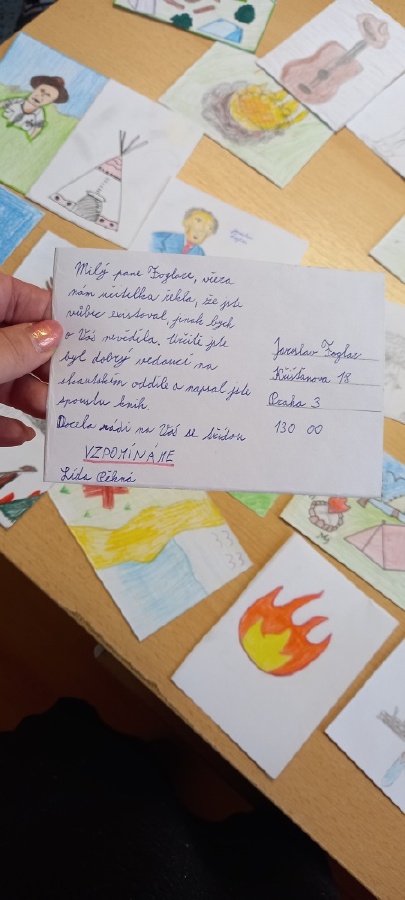 Milý pane Foglare, včera
nám učitelka řekla, že jste
vůbec existoval, jinak bych
o Vás nevěděla. Určitě jste
byl dobrý vedoucí na
skautském oddíle a napsal jste
spoustu knih.
Docela rádi na Vás se třídou
VZPOMÍNÁME
Lída Pěkná
Jaroslav Foglar
Křišťanova 18
Praha 3
130 00
33
33